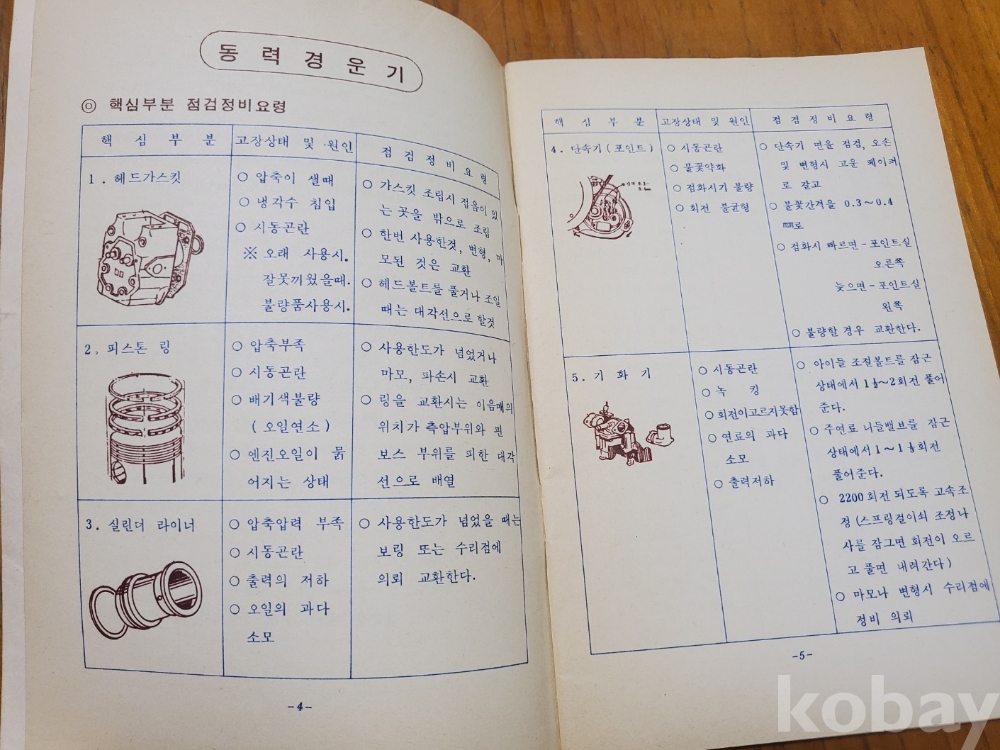 동력경운기
◎ 핵심부분 점검정비요령
핵심부분 고장상태 및 원인 점검정비요령
1. 헤드가스킷
○ 압축이 샐때
○ 냉각수 침입
○ 시동곤란
※ 오래 사용시.
잘못끼웠을때.
불량품사용시.
○ 가스킷 조립시 접음이 있
는 곳을 밖으로 조립
○ 한번 사용한것, 변형, 마
모된 것은 교환
○ 헤드볼트를 풀거나 조일
때는 대각선으로 할것
2. 피스톤 링
○ 압축부족
○ 시동곤란
○ 배기색불량
(오일연소)
○ 엔진오일이 묽
어지는 상태
○ 사용한도가 넘었거나
마모, 파손시 교환
○ 링을 교환시는 이음매의
위치가 측압부위와 핀
보스 부위를 피한 대각
선으로 배열
3. 실린더 라이너
○ 압축압력 부족
○ 시동곤란
○ 출력의 저하
○ 오일의 과다
소모
○ 사용한도가 넘었을 때는
보링 또는 수리점에
의뢰 교환한다.
-4-
핵심부분 고장상태 및 원인 점검정비요령
4. 단속기(포인트)
○ 시동곤란
○ 불꽃약화
○ 점화시기 불량
○ 회전 불균형
○ 단속기 면을 점검, 오손
및 변형시 고운 페이퍼
로 갈고
○ 불꽃간격을 0.3~0.4
㎜로
○ 점화시 빠르면-포인트실
오른쪽
늦으면-포인트실
왼쪽
○ 불량한 경우 교환한다.
5. 기화기
○ 시동곤란
○ 녹킹
○ 회전이고르지못함
○ 연료의 과다
소모
○ 출력저하
○ 아이들 조절볼트를 잠근
상태에서 1½~2회전 풀어
준다.
○ 주연료 니들밸브를 잠근
상태에서 1~1½회전
풀어준다.
○ 2200회전 되도록 고속조
정(스프링걸이쇠 조정나
사를 잠그면 회전이 오르
고 풀면 내려간다)
○ 마모나 변형시 수리점에
정비 의뢰
-5-
kobay